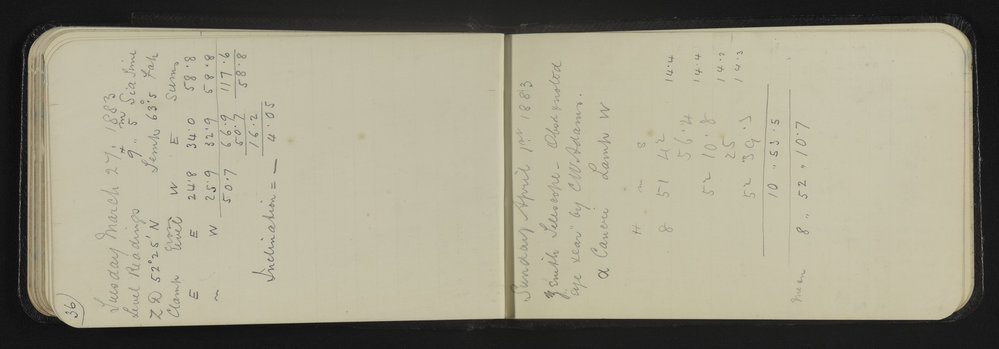 36
Tuesday March 27, 1883
Level Readings 9h 5m Sia Time
Z D 52° 25' N Temp 63°.5 Fah
Clamp from level W E Sums
E E 24.8 34.0 58.8
" W 25.9 32.9 58.8
50.7 66.9 117.6
50.7 58.8
16.2
Inclination = — 4.05
Sunday April 1st 1883
Zenith Telescope - Obsd &
eye & ear by C W Adams.
α Cancri Lamp W
H m s
8 51 42
56.4 14.4
52 10.8 14.4
25 14.2
52 39.3 14.3
10 " 53.5
mean 8 " 52 " 10.7